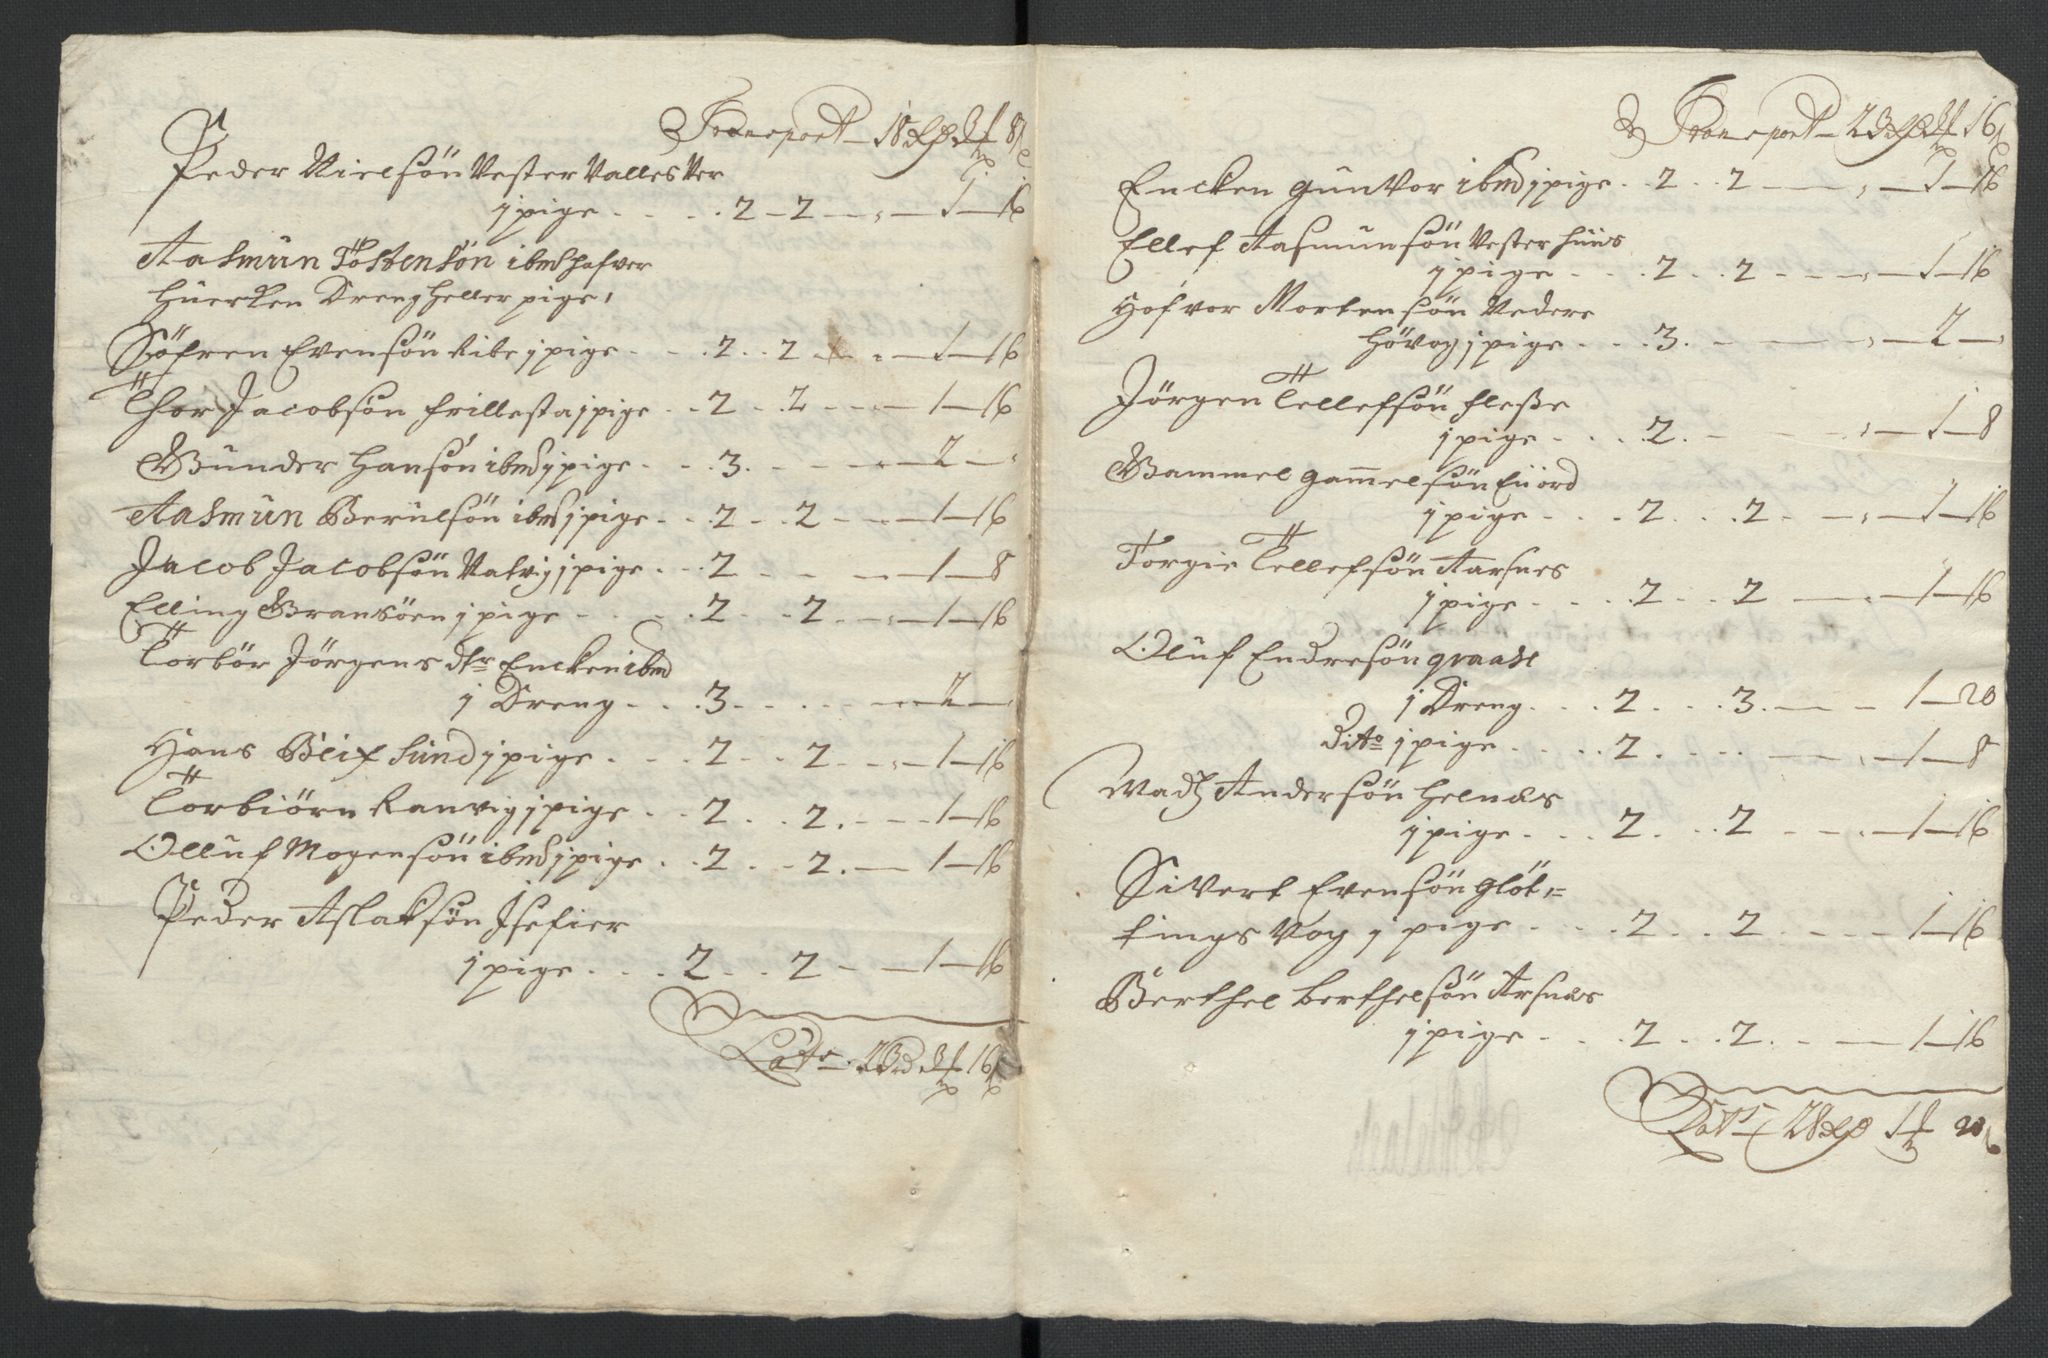 Transport – 18 Rd 3 ₰ 8 s
Peder Nielsön Vester Valles Ver
j pige . . . 2 – 2 – – 1 – 16
Aasmün Tostensön ibmd hafver
hüerken Dreng heller pige,
Söfren Evensön Kibe j pige . . . 2 . . 2 – – 1 – 16
Thor Jacobsön frillesta j pige . . 2 . . 2 – – 1 – 16
Günder Hansön ibmd j pige . . . 3 . – – – 2 –
Aasmün Berülsön ibmd j pige . . 2 . . 2 – – 1 – 16
Jacob Jacobsön Valvig j pige . . 2 – – – 1 – 8
Elling Bransöen j pige . . . 2 . . 2 – – 1 – 16
Torbör Jörgens dtr Encken ibmd
j Dreng . . . 3 . . . – 2 –
Hans Blix Sünd j pige . . . 2 . . 2 – – 1 – 16
Torbiörn Ranvig j pige . . 2 . . 2 . – – 1 – 16
Ollüf Mogensön ibmd j pige . . 2 . . 2 . – 1 – 16
Peder Aslaksön Isefier
j pige . . . 2 . . 2 – – 1 – 16
Late 23 rd 3 ₰ 16 s
Transport – 23 Rd 3 ₰ 16 s
Encken günvor ibmd j pige . . 2 . . 2 – – 1 – 16
Ellef Aasmunsön Vester hüüs
j pige . . . 2 . . 2 – – 1 – 16
Hofvor Mortensön Vedere
hövog j pige . . . 3 . – – – 2 –
Jörgen Tellefsön flesse
j pige . . . 2 . – – 1 – 8
Gammel gam̄elsön Eüörd
j pige . . . 2 . . 2 – – 1 – 16
Torgie Tellefsön Aarsnes
j pige . . . 2 . . 2 – – 1 – 16
Olüf Endresön graase
j Dreng . . . 2 . . . 3 . – – 1 – 20
dito j pige . . . 2 . . . – – 1 – 8
Madz Andersön Helnæs
j pige . . . 2 . . 2 – – 1 – 16
Sivert Evensön glöt=
tings Vog j pige . . . 2 . . 2 – – 1 – 16
Berthel berthelsön Arsnæs
j pige . . . 2 . . 2 . – – 1 – 16
Lats 28 Rd 1 ₰ 20 s